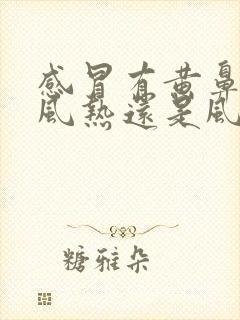 感冒有黄鼻
风热还是风
糖雅朵